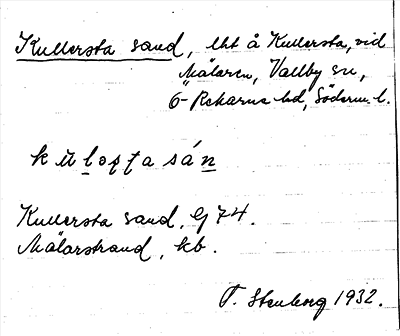 Kullersta sand, lht å Kullersta, vid
Mälaren, Vallby sn,
Ö-Rekarne hd, Söderm. l.
Kullersta sand, GJ 74.
Mälarstrand, kb.
T. Stenberg 1932.